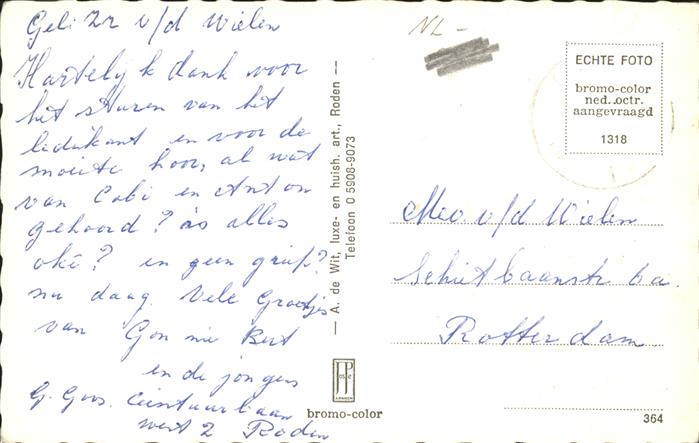 Geli Zr v/d Wielen
Hartelijk dank voor
het sturen van het
ledikant en voor de
moeite hoor, al wat
van Cobi en Anton
gehoord? is alles
oké? en geen griep?
nu daag. Vele Groetjes
van Gon nie Bert
en de jongens
G. Goos. Ceintuurbaan
west 2 Roden
— A. de Wit, luxe- en huish. art., Roden —
Telefoon 0 5908-9073
JosPé
ARNHEM
bromo-color
NL -
ECHTE FOTO
bromo-color
ned. octr.
aangevraagd
1318
Mev v/d Wielen
Schietbaanstr 6a.
Rotterdam
364